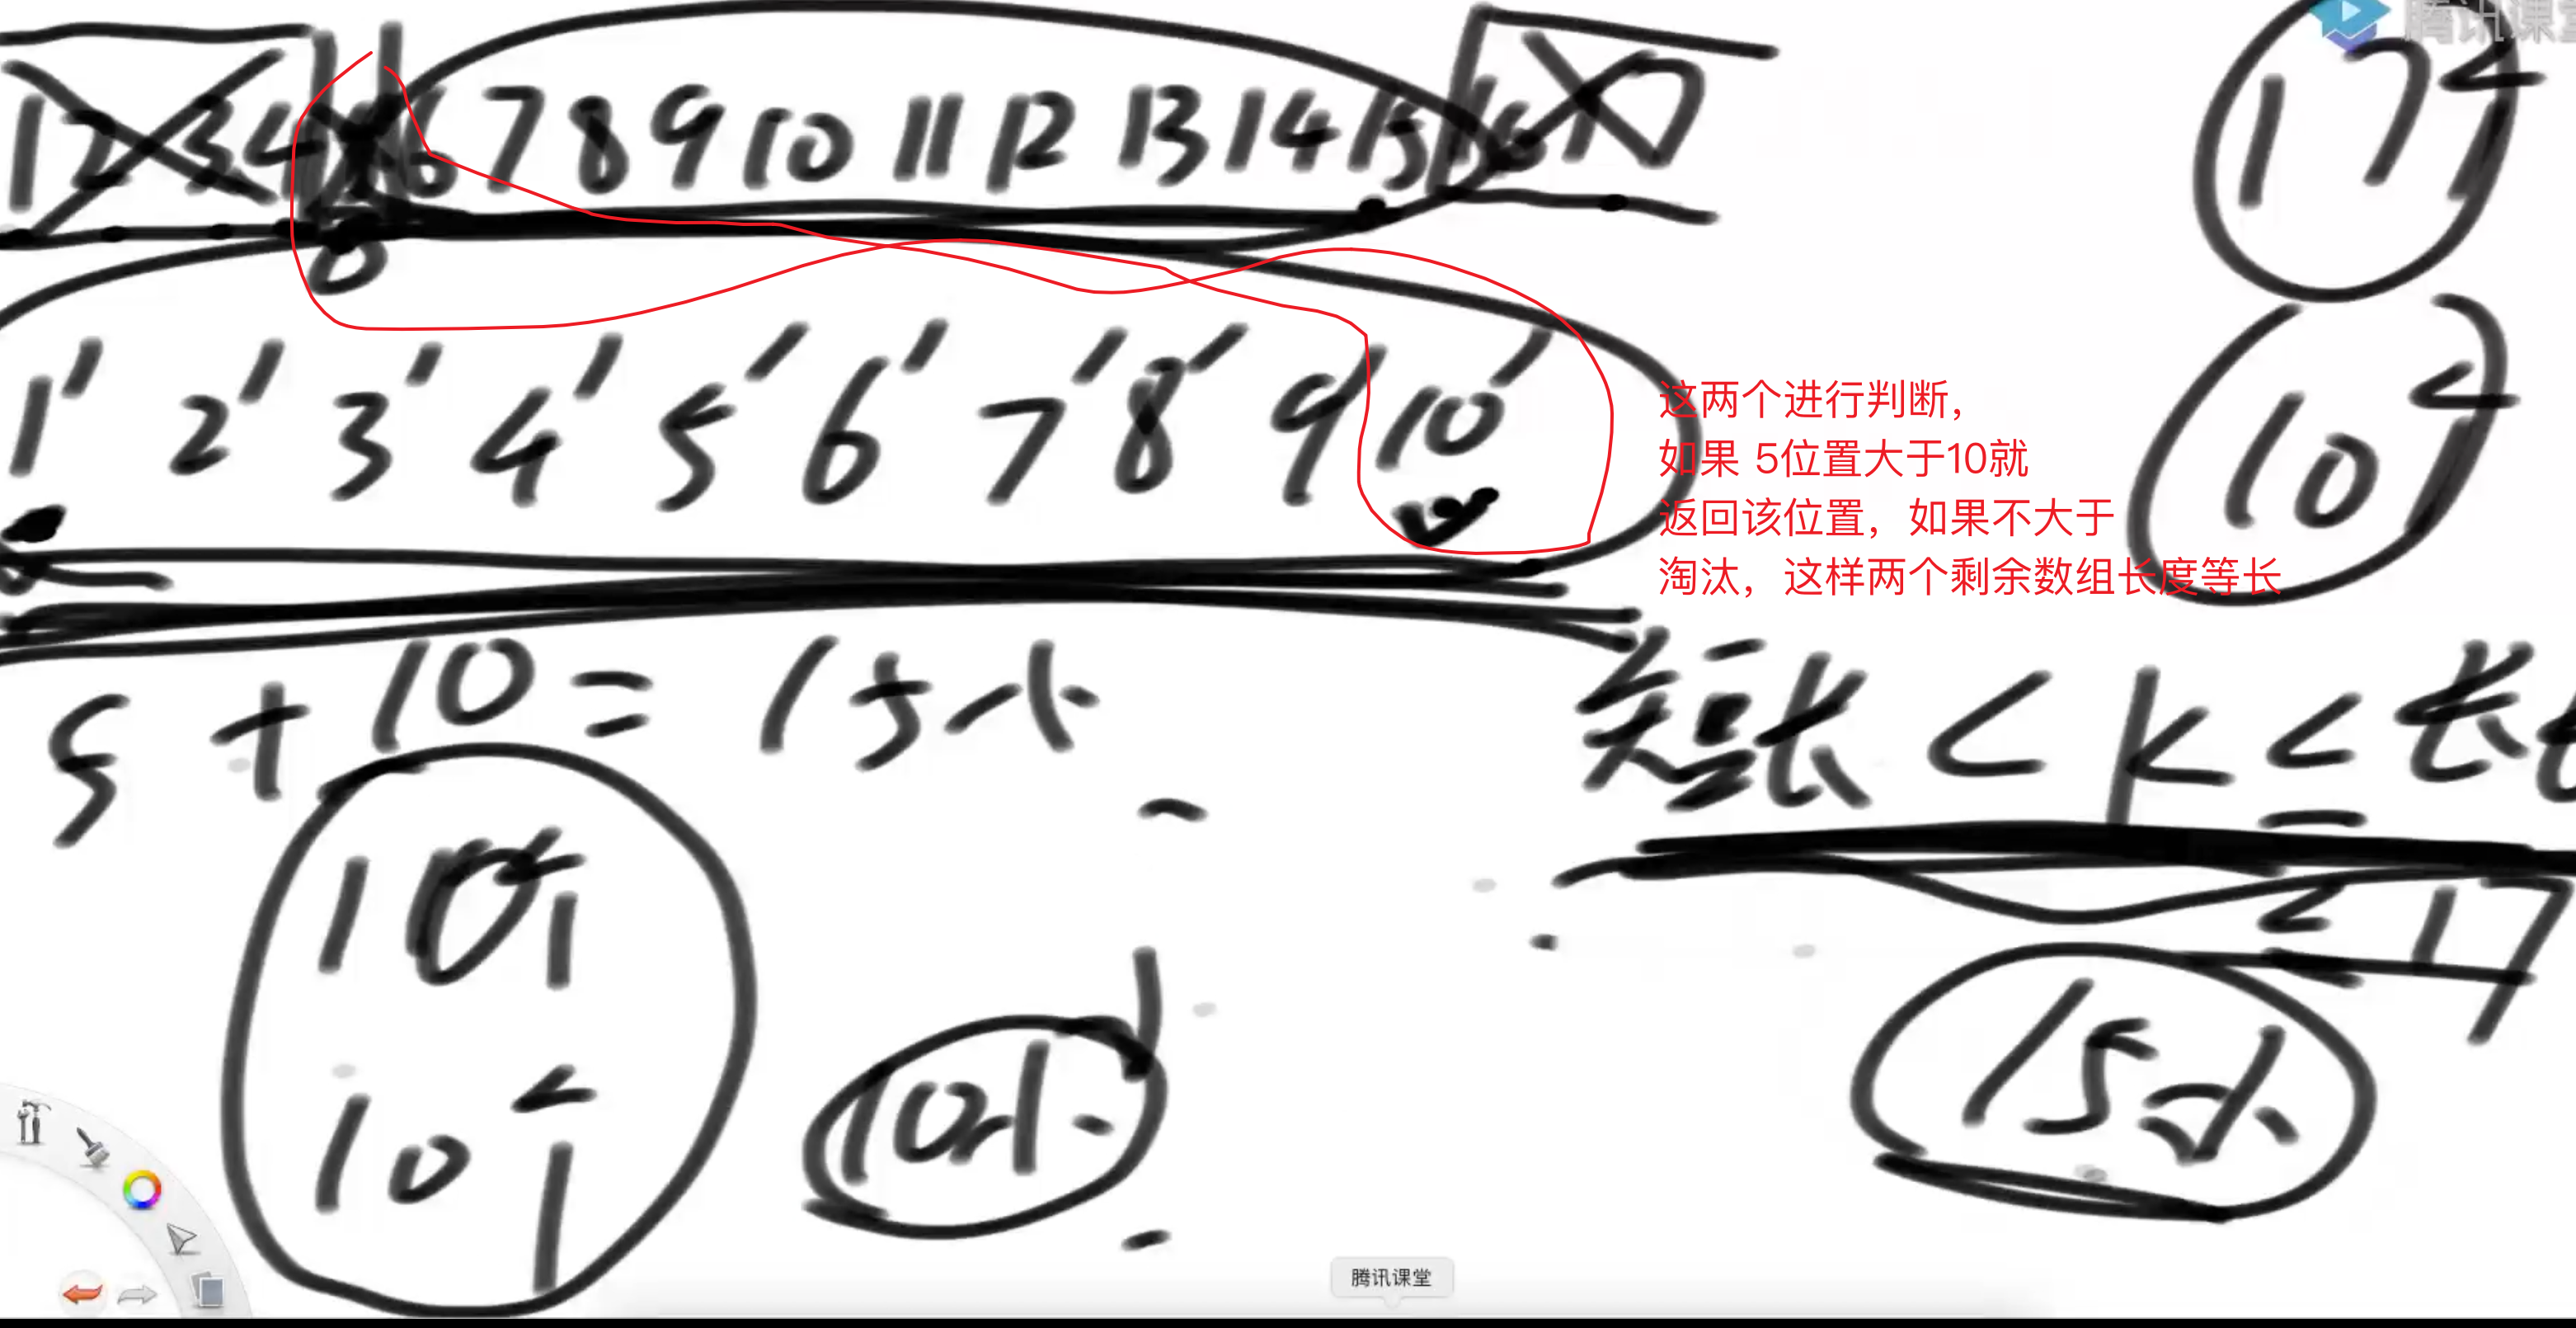 腾讯课堂
1 2 3 4 5 6 7 8 9 10 11 12 13 14 15 16 17
17个
1' 2' 3' 4' 5' 6' 7' 8' 9' 10'
10个
这两个进行判断，
如果 5位置大于10就
返回该位置，如果不大于
淘汰，这样两个剩余数组长度等长
5 + 10 = 15小
短长 < K ≤ 长长
10个
17
10个
10小
15小
腾讯课堂